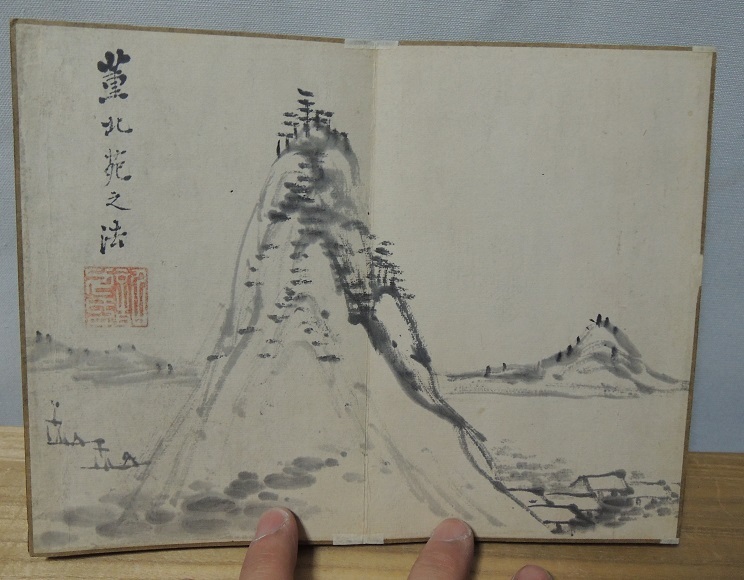 董北苑之法